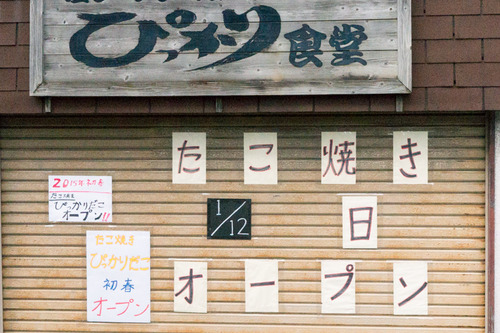 ぴっかり食堂
たこ焼き
1/12日
オープン
2015年初春
たこ焼き
ぴっかりだこ
オープン!!
たこ焼き
ぴっかりだこ
初春
オープン